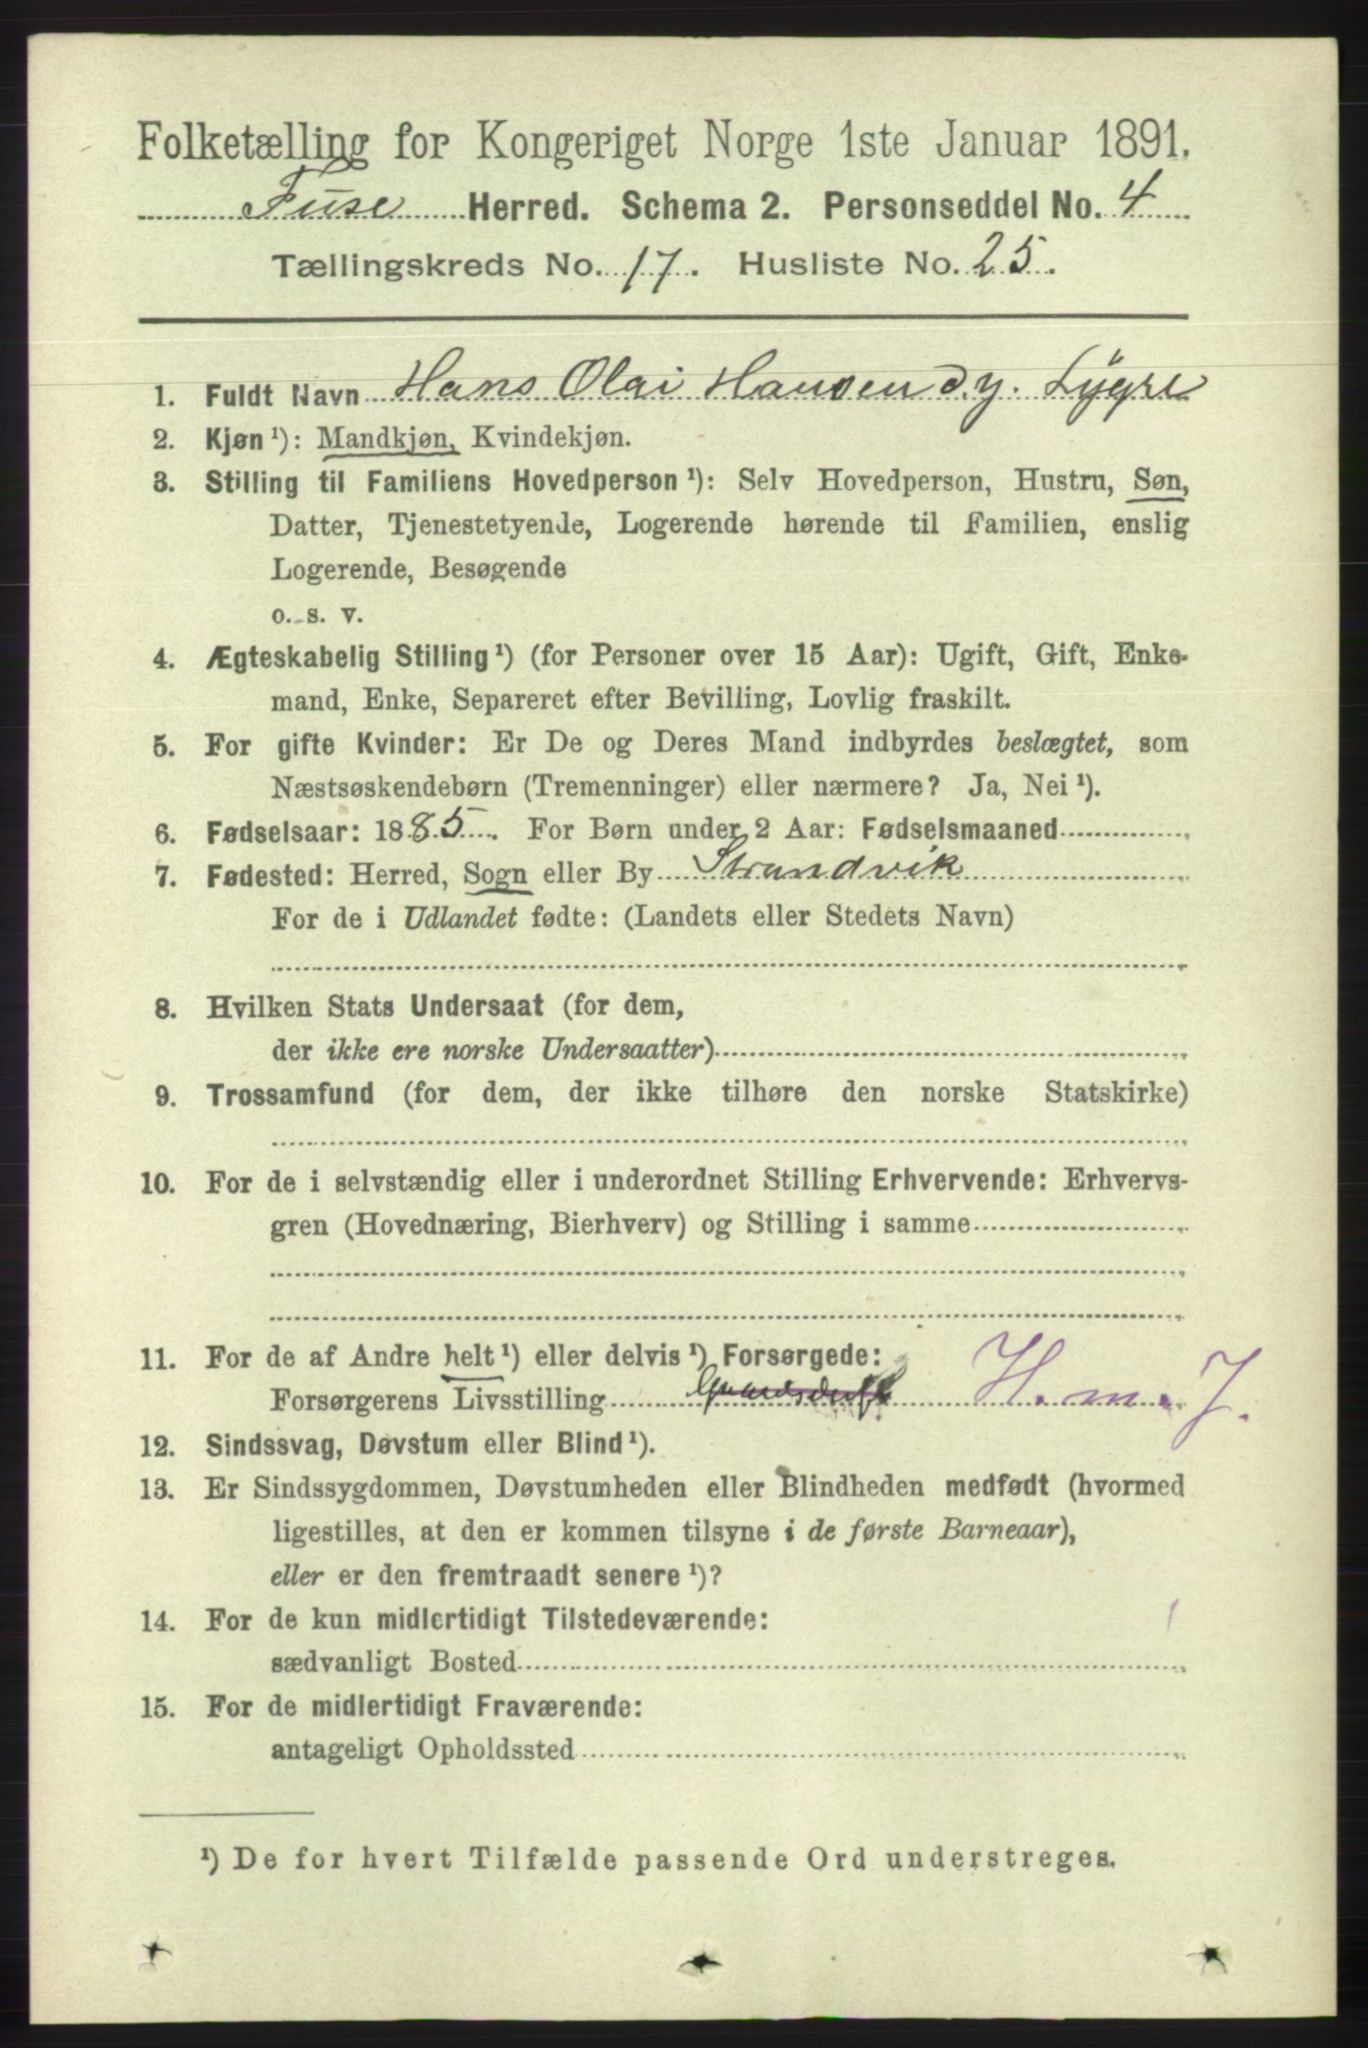 Folketælling for Kongeriget Norge 1ste Januar 1891.
Fuse Herred. Schema 2. Personseddel No. 4
Tællingskreds No. 17. Husliste No. 25.
1. Fuldt Navn Hans Olai Hansen d.y. Lygre
2. Kjøn ¹): Mandkjøn, Kvindekjøn.
3. Stilling til Familiens Hovedperson ¹): Selv Hovedperson, Hustru, Søn,
Datter, Tjenestetyende, Logerende hørende til Familien, enslig
Logerende, Besøgende
o. s. v.
4. Ægteskabelig Stilling ¹) (for Personer over 15 Aar): Ugift, Gift, Enke-
mand, Enke, Separeret efter Bevilling, Lovlig fraskilt.
5. For gifte Kvinder: Er De og Deres Mand indbyrdes beslægtet, som
Næstsøskendebørn (Tremenninger) eller nærmere? Ja, Nei ¹).
6. Fødselsaar: 1885. For Børn under 2 Aar: Fødselsmaaned
7. Fødested: Herred, Sogn eller By Strandvik
For de i Udlandet fødte: (Landets eller Stedets Navn)
8. Hvilken Stats Undersaat (for dem,
der ikke ere norske Undersaatter)
9. Trossamfund (for dem, der ikke tilhøre den norske Statskirke)
10. For de i selvstændig eller i underordnet Stilling Erhvervende: Erhvervs-
gren (Hovednæring, Bierhverv) og Stilling i samme
11. For de af Andre helt ¹) eller delvis ¹) Forsørgede:
Forsørgerens Livsstilling H. m. J.
12. Sindssvag, Døvstum eller Blind ¹).
13. Er Sindssygdommen, Døvstumheden eller Blindheden medfødt (hvormed
ligestilles, at den er kommen tilsyne i de første Barneaar),
eller er den fremtraadt senere ¹)?
14. For de kun midlertidigt Tilstedeværende:
sædvanligt Bosted
15. For de midlertidigt Fraværende:
antageligt Opholdssted
¹) De for hvert Tilfælde passende Ord understreges.